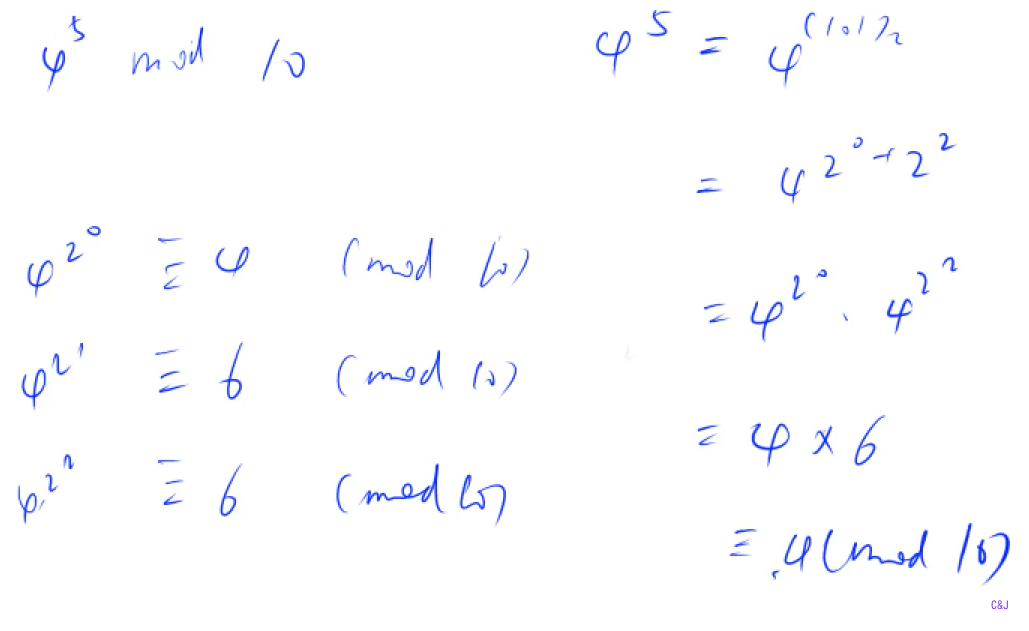 4^5 mod 10
4^{2^0} ≡ 4 (mod 10)
4^{2^1} ≡ 6 (mod 10)
4^{2^2} ≡ 6 (mod 10)
4^5 = 4^{(101)_2}
= 4^{2^0+2^2}
= 4^{2^0} · 4^{2^2}
= 4 × 6
≡ 4 (mod 10)
C&J